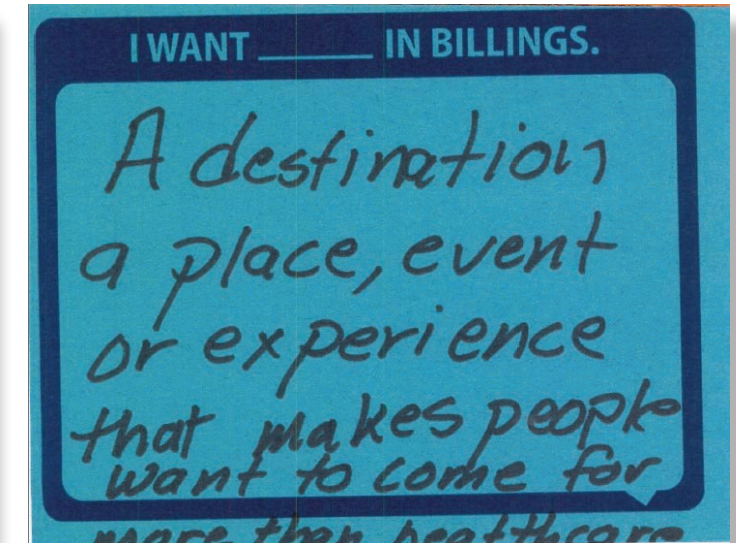 I WANT _____ IN BILLINGS.
A destination
a place, event
or experience
that makes people
want to come for
more than healthcare